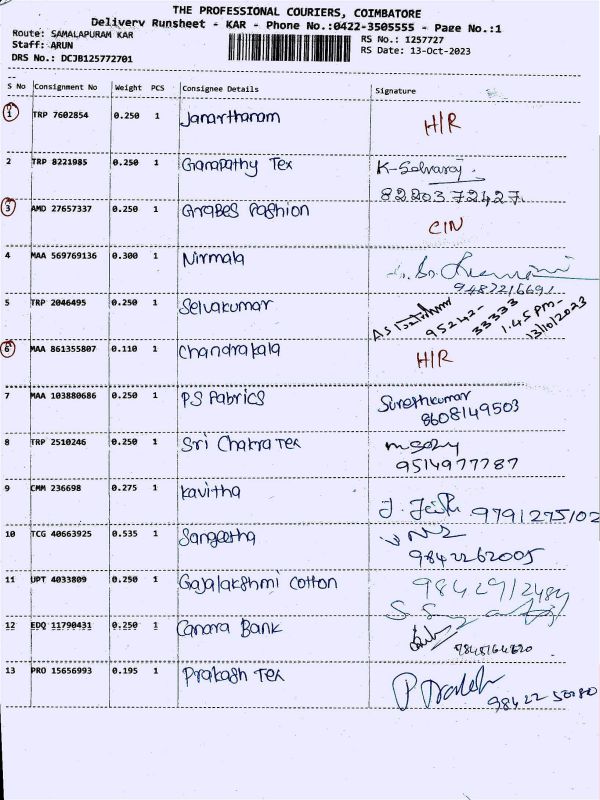 THE PROFESSIONAL COURIERS, COIMBATORE
Delivery Runsheet - KAR - Phone No.:0422-3505555 - Page No.:1
Route: SAMALAPURAM KAR RS No.: 1257727
Staff: ARUN RS Date: 13-Oct-2023
DRS No.: DCJB125772701
S No Consignment No Weight PCS Consignee Details Signature
1 TRP 7602854 0.250 1 Janarthanam H/R
2 TRP 8221985 0.250 1 Ganapathy Tex K-Selvaraj
8220372427
3 AMD 27657337 0.250 1 Grabes Fashion CIN
4 MAA 569769136 0.300 1 Nirmala
9487216691
5 TRP 2046495 0.250 1 Selvakumar 95242-
33333
1.45 pm-
13/10/2023
6 MAA 861355807 0.110 1 Chandrakala H/R
7 MAA 103880686 0.250 1 PS Fabrics Sureshkumar
8608149503
8 TRP 2510246 0.250 1 Sri Chakra Tex
9514977787
9 CMM 236698 0.275 1 Kavitha 9791275102
10 TCG 40663925 0.535 1 Sangeetha
9842262005
11 UPT 4033809 0.250 1 Gajalakshmi Cotton 9842912484
12 EDQ 11790431 0.250 1 Canara Bank
13 PRO 15656993 0.195 1 Prakash Tex